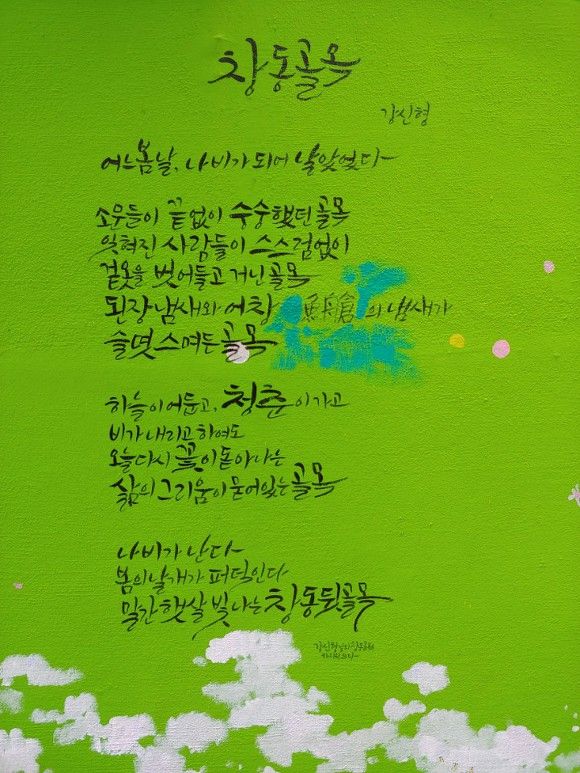 창동골목
강신형
어느봄날, 나비가 되어 날았었다
소문들이 끝없이 숭숭했던 골목
잊혀진 사람들이 스스럼없이
겉옷을 벗어들고 거닌 골목
된장 냄새와 어창 의 냄새가
슬몃 스며든 골목
하늘이 어둡고, 청춘이 가고
비가 내리고 하여도
오늘 다시 꽃이 돋아나는
삶의 그리움이 묻어있는 골목
나비가 난다
봄의 날개가 퍼덕인다
말간 햇살 빛나는 창동 뒷골목